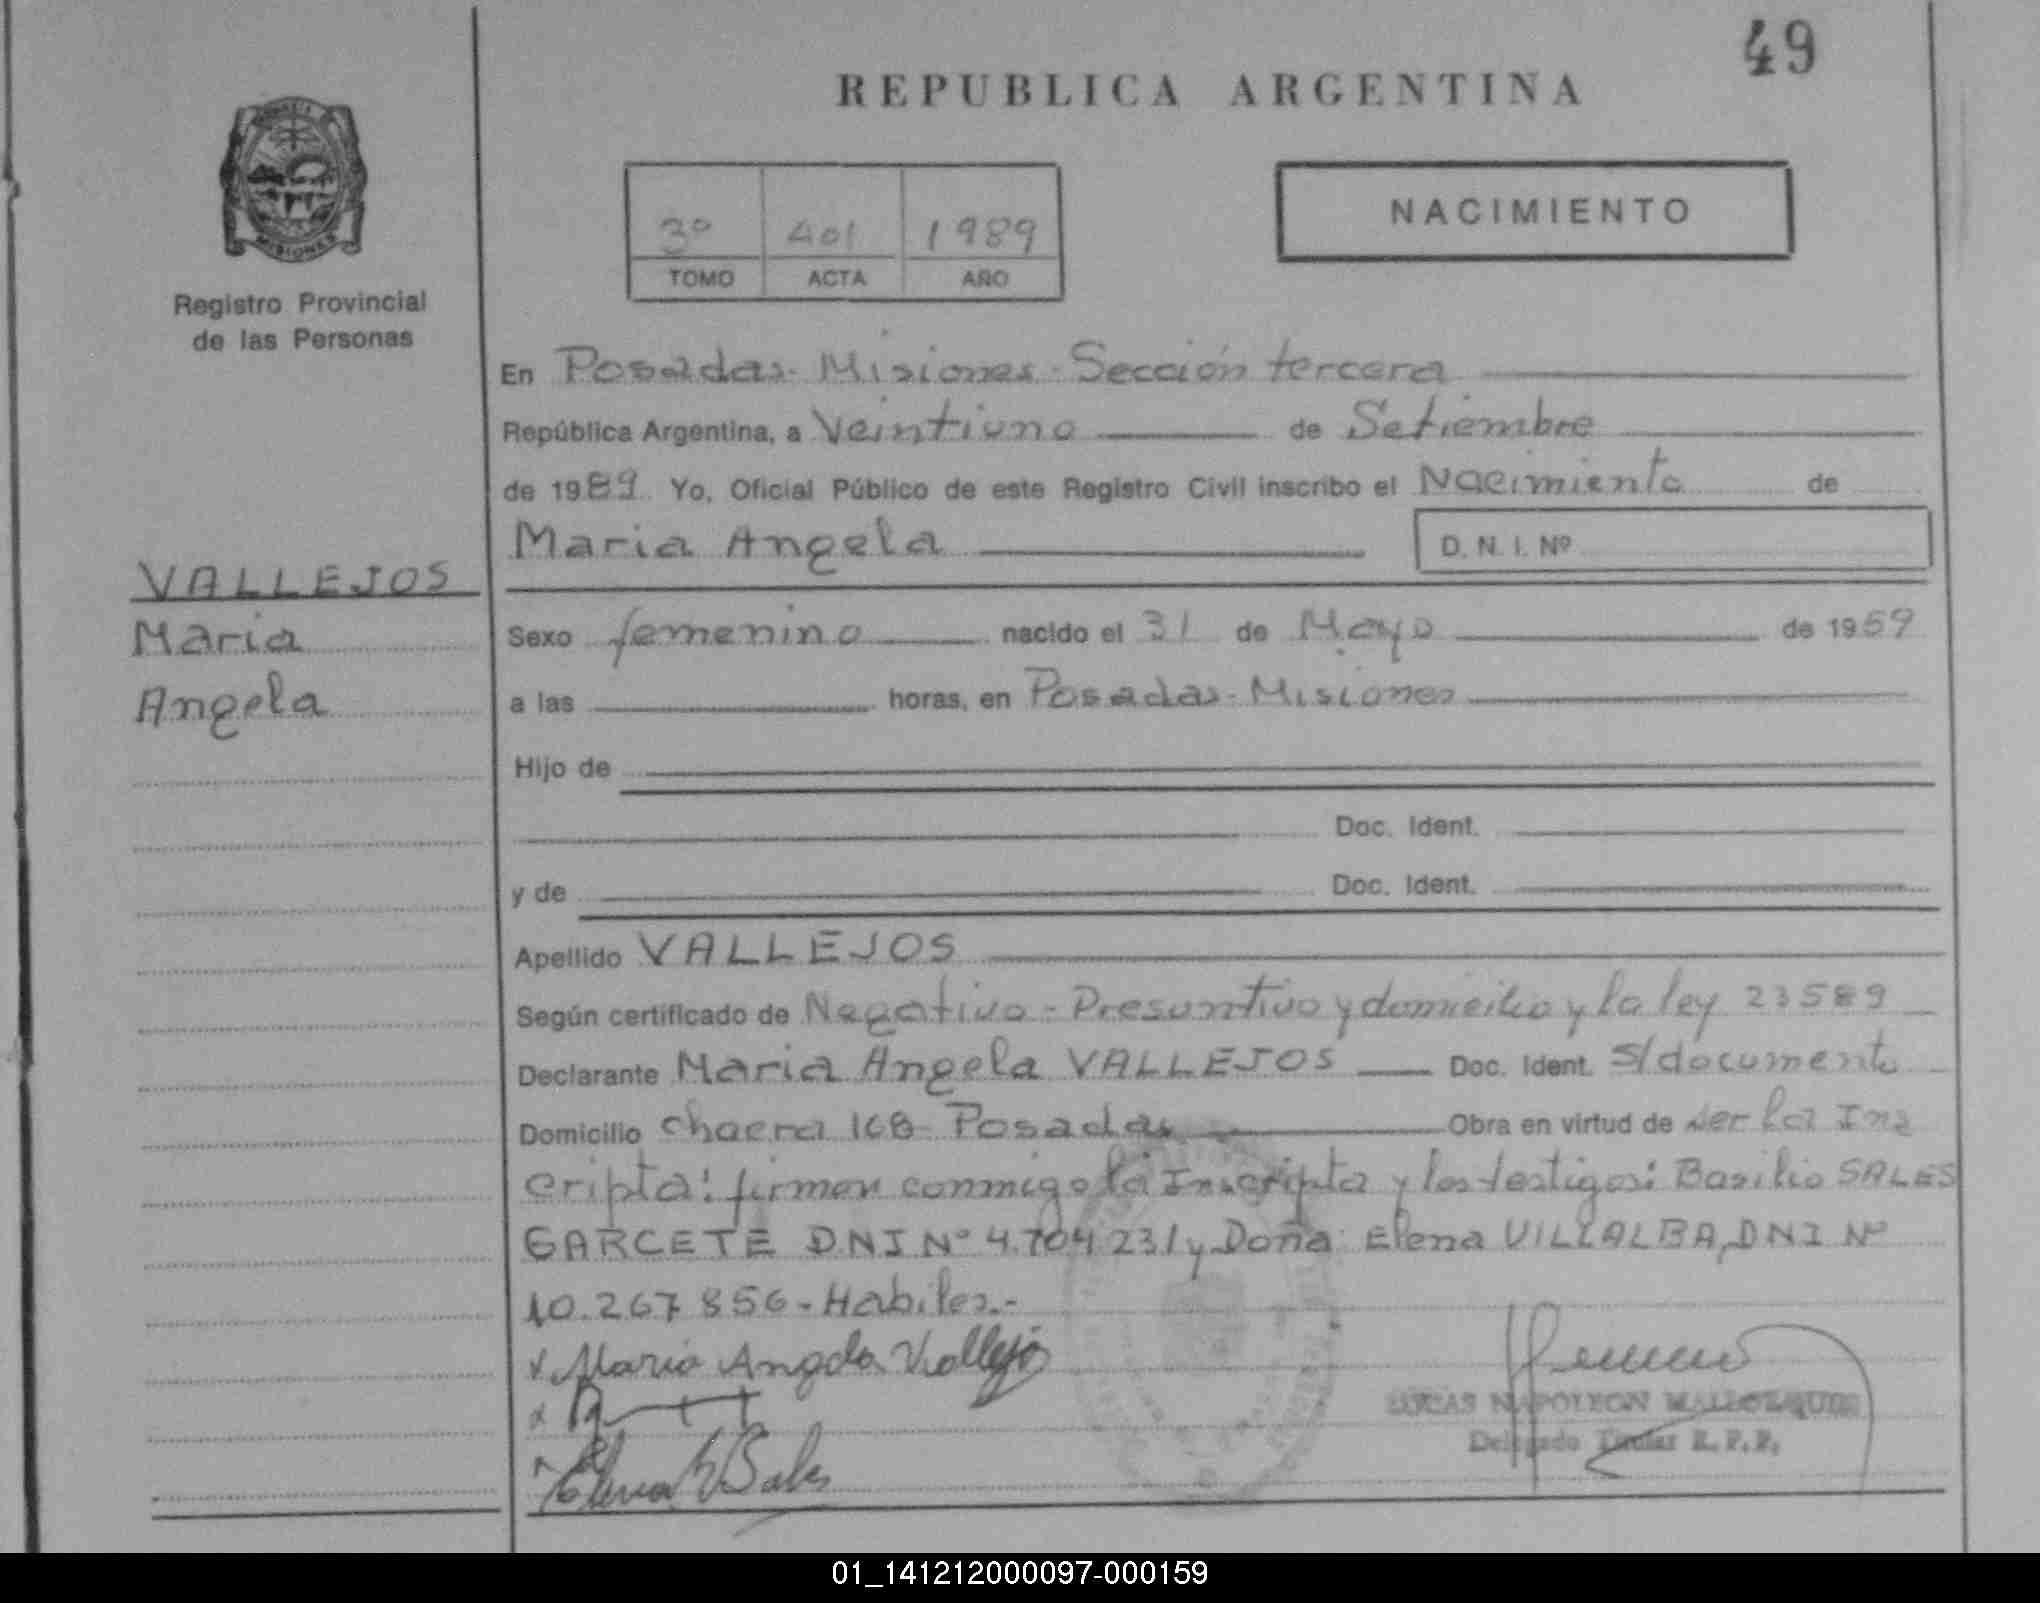 49
REPUBLICA ARGENTINA
MISIONES
Registro Provincial
de las Personas
3º 401 1989
TOMO ACTA AÑO
NACIMIENTO
En Posadas - Misiones - Sección tercera
República Argentina, a Veintiuno de Setiembre
de 1989 Yo, Oficial Público de este Registro Civil inscribo el Nacimiento de
Maria Angela D. N. I. Nº
VALLEJOS
Maria
Angela
Sexo femenino nacido el 31 de Mayo de 1959
a las horas, en Posadas - Misiones
Hijo de
Doc. Ident.
y de Doc. Ident.
Apellido VALLEJOS
Según certificado de Negativo - Presuntivo y domicilio y la ley 23589
Declarante Maria Angela VALLEJOS Doc. Ident. S/documento
Domicilio chacra 168 - Posadas Obra en virtud de ser la Ins
cripta: firman conmigo la Inscripta y los testigos: Basilio SALES
GARCETE DNI Nº 4.704 231 y Doña: Elena VILLALBA, DNI Nº
10.267 856 - Habiles.-
x Maria Angela Vallejo
x
Elena V Sales
LUCAS NAPOLEON
Delegado Titular R.P.P.
01_141212000097-000159